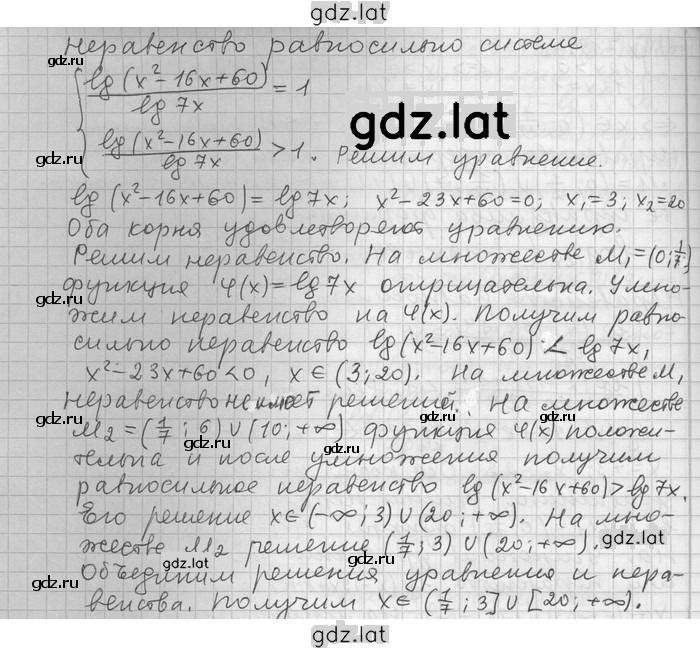 gdz.lat
Неравенство равносильно системе
{ lg (x²-16x+60) / lg 7x = 1
gdz.lat
lg (x²-16x+60) / lg 7x > 1. Решим уравнение.
lg (x²-16x+60) = lg 7x; x²-23x+60=0; x₁=3; x₂=20
Оба корня удовлетворяют уравнению.
Решим неравенство. На множестве M₁=(0;1/7)
функция φ(x)=lg 7x отрицательна. Умно-
жим неравенство на φ(x). Получим равно-
сильно неравенство lg (x²-16x+60) < lg 7x,
x²-23x+60<0, x ∈ (3; 20). На множестве M₁
неравенство не имеет решений. На множестве
M₂=(1/7; 6) ∪ (10; +∞) функция φ(x) положи-
тельна и после умножения получим
равносильное неравенство lg (x²-16x+60) > lg 7x.
Его решение x∈(-∞; 3) ∪ (20; +∞). На мно-
жестве M₂ решение (1/7; 3) ∪ (20; +∞).
Объединим решения уравнения и нера-
венства. Получим x∈ (1/7; 3] ∪ [20; +∞).
gdz.lat